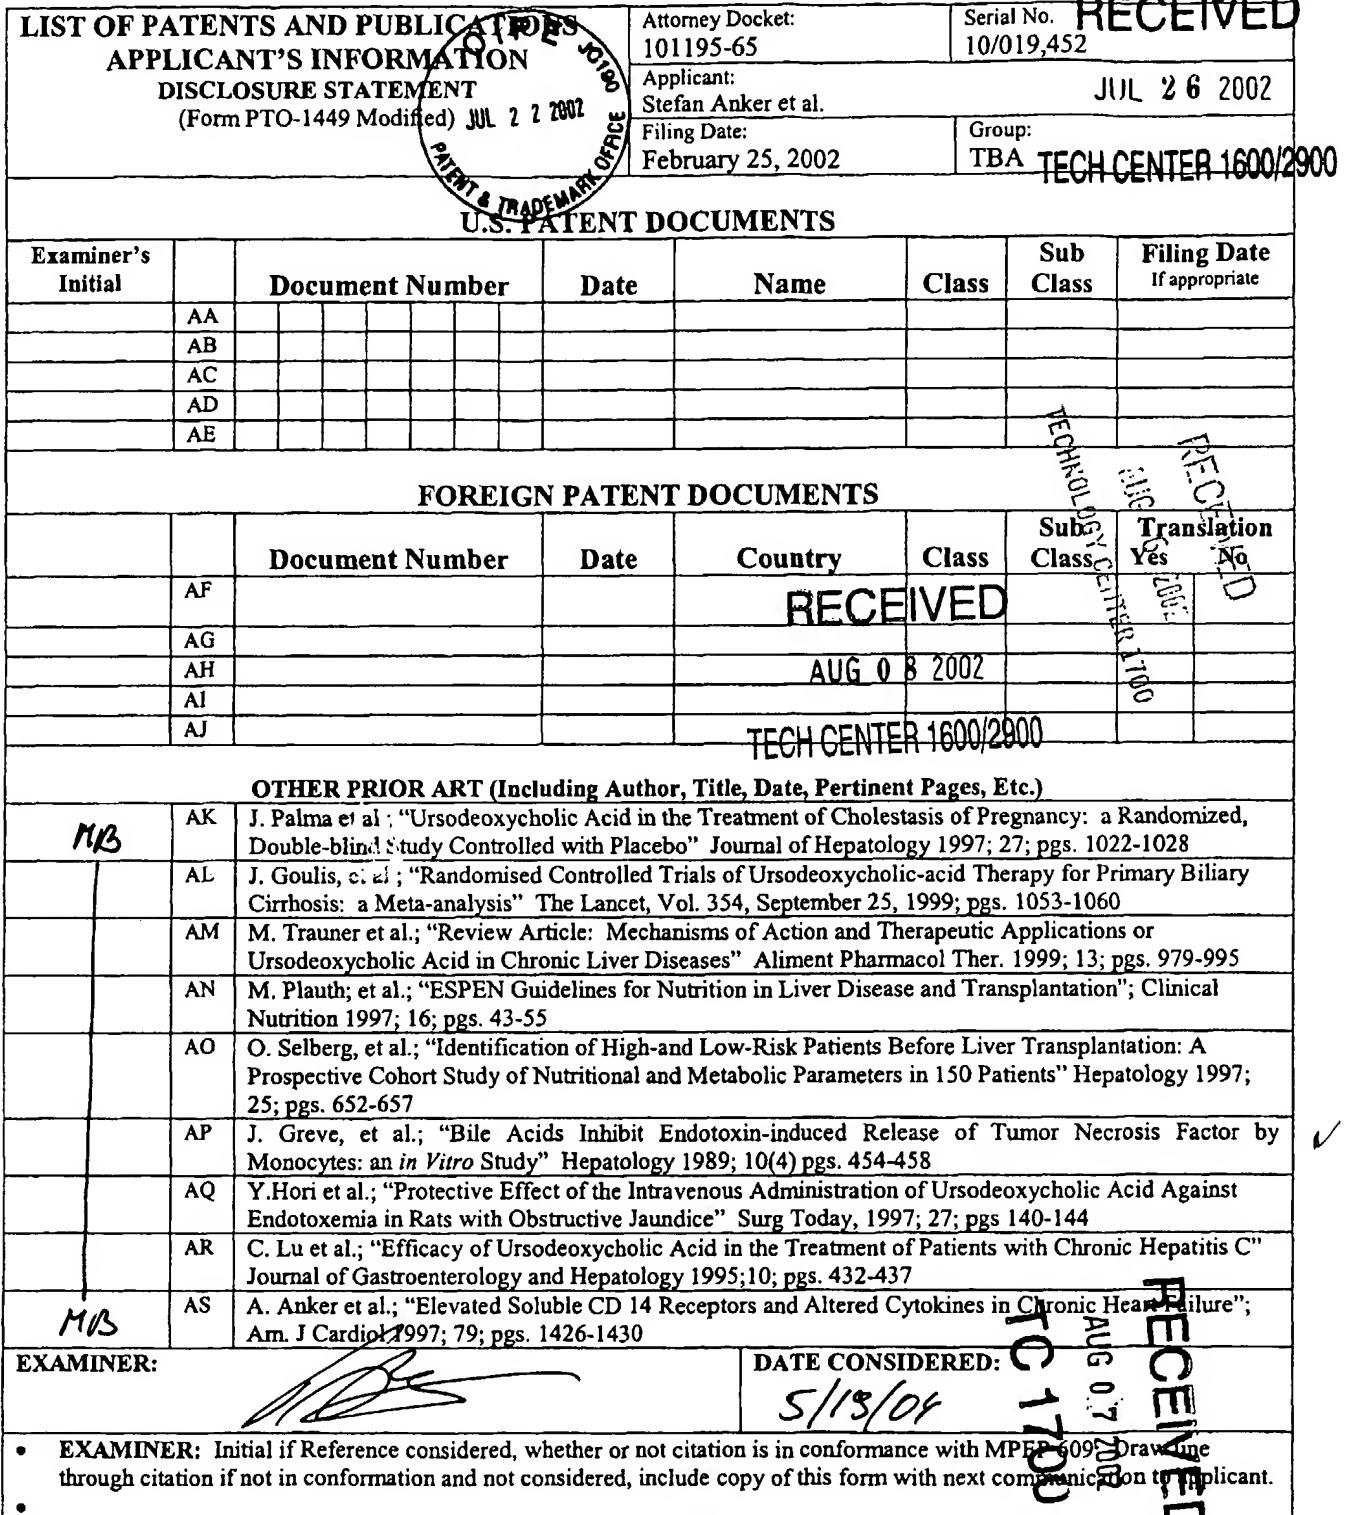 LIST OF PATENTS AND PUBLICATIONS
APPLICANT'S INFORMATION
DISCLOSURE STATEMENT
(Form PTO-1449 Modified)
OIPE JC190
JUL 22 2002
PATENT & TRADEMARK OFFICE
Attorney Docket:
101195-65
Serial No.
10/019,452
RECEIVED
Applicant:
Stefan Anker et al.
JUL 26 2002
Filing Date:
February 25, 2002
Group:
TBA
TECH CENTER 1600/2900
U.S. PATENT DOCUMENTS
Examiner's Initial Document Number Date Name Class Sub Class Filing Date If appropriate
AA
AB
AC
AD
AE
FOREIGN PATENT DOCUMENTS
Document Number Date Country Class Sub Class Translation Yes No
RECEIVED
AUG 2002
TECHNOLOGY CENTER 1700
AF
RECEIVED
AG
AH
AUG 08 2002
AI
AJ
TECH CENTER 1600/2900
OTHER PRIOR ART (Including Author, Title, Date, Pertinent Pages, Etc.)
MB AK J. Palma et al ; “Ursodeoxycholic Acid in the Treatment of Cholestasis of Pregnancy: a Randomized,
Double-blind Study Controlled with Placebo” Journal of Hepatology 1997; 27; pgs. 1022-1028
AL J. Goulis, et al ; “Randomised Controlled Trials of Ursodeoxycholic-acid Therapy for Primary Biliary
Cirrhosis: a Meta-analysis” The Lancet, Vol. 354, September 25, 1999; pgs. 1053-1060
AM M. Trauner et al.; “Review Article: Mechanisms of Action and Therapeutic Applications or
Ursodeoxycholic Acid in Chronic Liver Diseases” Aliment Pharmacol Ther. 1999; 13; pgs. 979-995
AN M. Plauth; et al.; “ESPEN Guidelines for Nutrition in Liver Disease and Transplantation”; Clinical
Nutrition 1997; 16; pgs. 43-55
AO O. Selberg, et al.; “Identification of High-and Low-Risk Patients Before Liver Transplantation: A
Prospective Cohort Study of Nutritional and Metabolic Parameters in 150 Patients” Hepatology 1997;
25; pgs. 652-657
AP J. Greve, et al.; “Bile Acids Inhibit Endotoxin-induced Release of Tumor Necrosis Factor by
Monocytes: an in Vitro Study” Hepatology 1989; 10(4) pgs. 454-458
AQ Y.Hori et al.; “Protective Effect of the Intravenous Administration of Ursodeoxycholic Acid Against
Endotoxemia in Rats with Obstructive Jaundice” Surg Today, 1997; 27; pgs 140-144
AR C. Lu et al.; “Efficacy of Ursodeoxycholic Acid in the Treatment of Patients with Chronic Hepatitis C”
Journal of Gastroenterology and Hepatology 1995;10; pgs. 432-437
MB AS A. Anker et al.; “Elevated Soluble CD 14 Receptors and Altered Cytokines in Chronic Heart Failure”;
Am. J Cardiol 1997; 79; pgs. 1426-1430
EXAMINER:
DATE CONSIDERED:
5/13/04
RECEIVED
AUG 07 2002
TC 1700
• EXAMINER: Initial if Reference considered, whether or not citation is in conformance with MPEP 609; Draw line
through citation if not in conformation and not considered, include copy of this form with next communication to applicant.
•